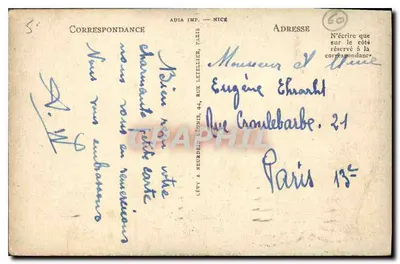 ADIA IMP. - NICE
CORRESPONDANCE
ADRESSE
N'écrire que
sur le côté
réservé à la
correspondance
5
60
Bien reçu votre
charmante petite carte
nous vous en remercions
Nous vous embrassons
A. W
LÉVY & NEURDEIN RÉUNIS, 44, RUE LETELLIER, PARIS
Monsieur et Mme
Eugène
Rue Croulebarbe. 21
Paris 13e
CPAPHIL.com